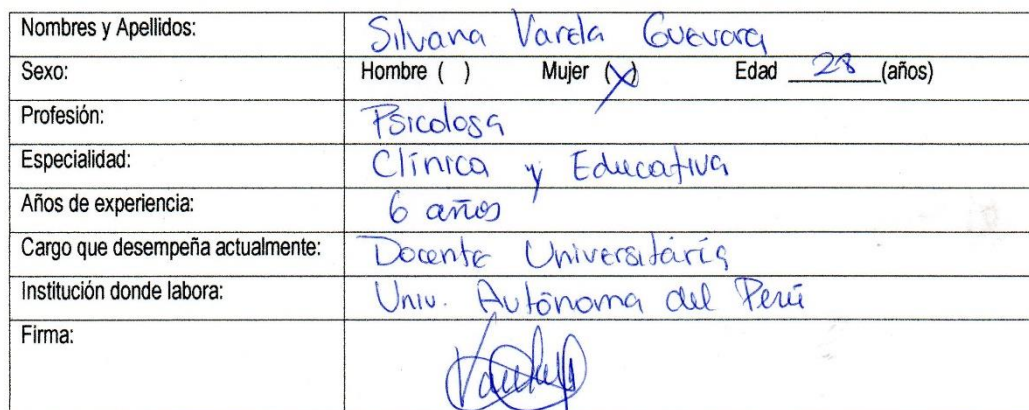 Nombres y Apellidos: Silvana Varela Guevara
Sexo: Hombre ( ) Mujer (X) Edad 28 (años)
Profesión: Psicologa
Especialidad: Clínica y Educativa
Años de experiencia: 6 años
Cargo que desempeña actualmente: Docente Universitaria
Institución donde labora: Univ. Autónoma del Perú
Firma: